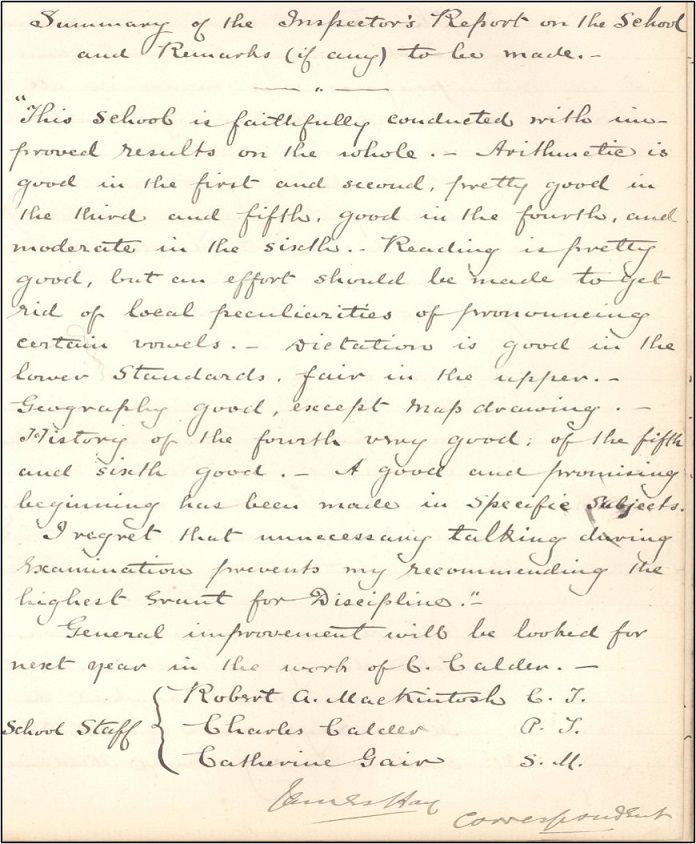 Summary of the Inspector's Report on the School
and Remarks (if any) to be made.—
"This School is faithfully conducted with im-
proved results on the whole.— Arithmetic is
good in the first and second, pretty good in
the third and fifth, good in the fourth, and
moderate in the sixth.— Reading is pretty
good, but an effort should be made to get
rid of local peculiarities of pronouncing
certain vowels.— Dictation is good in the
lower Standards, fair in the upper.—
Geography good, except Map drawing.—
History of the fourth very good; of the fifth
and sixth good.— A good and promising
beginning has been made in Specific Subjects.
I regret that unnecessary talking during
Examination prevents my recommending the
highest Grant for Discipline."—
General improvement will be looked for
next year in the work of C. Calder.—
School Staff { Robert A. MacKintosh C. T.
Charles Calder P. T.
Catherine Gair S. M.
James Hay
Correspondent